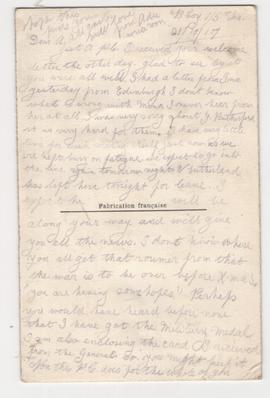 "B Coy 1/5
21/10/17
Dear A,
Just a p.c. I received your welcome
letter the other day. glad to see by it
you were all well. I had a letter
yesterday from Edinburgh I dont know
what is wrong with I never hear from
her at all I was very sorry about J. Rutherford
it is very hard for them. I have very little
time for just now as we
are kept busy on fatigue we expect to go into
the line again tomorrow night Sutherland
has left here tonight for leave. I
expect he will be
Fabrication française
along your way and will give
you all the news. I dont know where
you all got that roumer from that
the war is to be over before Xmas
"you are having some hopes". Perhaps
you would have heard before now
that I have got the Military Medal
I am also enclosing the card I received
from the General. So you might keep it
this P.C. does for the whole of you